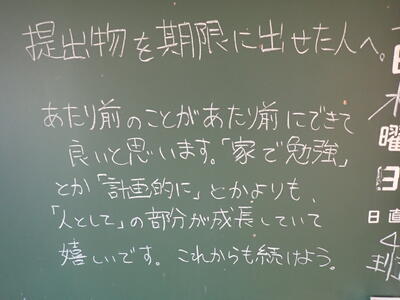 提出物を期限に出せた人へ。
あたり前のことがあたり前にできて
良いと思います。「家で勉強」
とか「計画的に」とかよりも、
「人として」の部分が成長していて
嬉しいです。これからも続けよう。
曜
日
日直